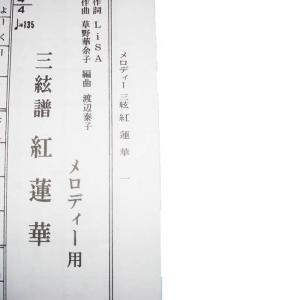 メロディー 三絃 紅蓮華 一
作詞 LiSA
作曲 草野華余子 編曲 渡辺泰子
メロディー用
三絃譜 紅蓮華
4
♩=135
よーくー